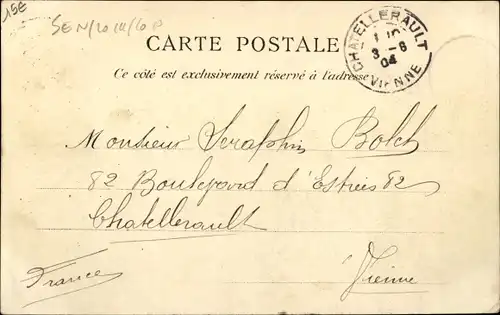 15€
CARTE POSTALE
Ce côté est exclusivement réservé à l'adresse
CHATELLERAULT
3-8
04
VIENNE
Monsieur Seraphin Bolch
82 Boulevard d'Estrées 82
Chatellerault
France
Vienne